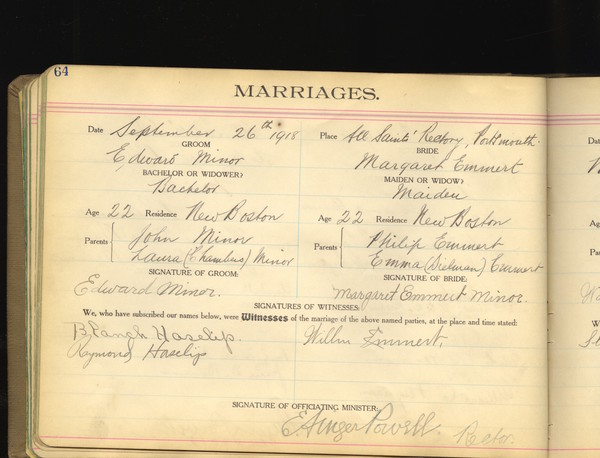 64
MARRIAGES.
Date September 26th 1918 Place All Saints' Rectory, Portsmouth.
GROOM BRIDE
Edward Minor Margaret Emmert
BACHELOR OR WIDOWER? MAIDEN OR WIDOW?
Bachelor Maiden
Age 22 Residence New Boston Age 22 Residence New Boston
Parents John Minor Parents Philip Emmert
Laura (Chambers) Minor Emma () Emmert
SIGNATURE OF GROOM: SIGNATURE OF BRIDE:
Edward Minor. Margaret Emmert Minor.
SIGNATURES OF WITNESSES:
We, who have subscribed our names below, were Witnesses of the marriage of the above named parties, at the place and time stated:
Blanch Haselip. Emmert.
Raymond Haselip
SIGNATURE OF OFFICIATING MINISTER:
E. Ainger Powell. Rector.